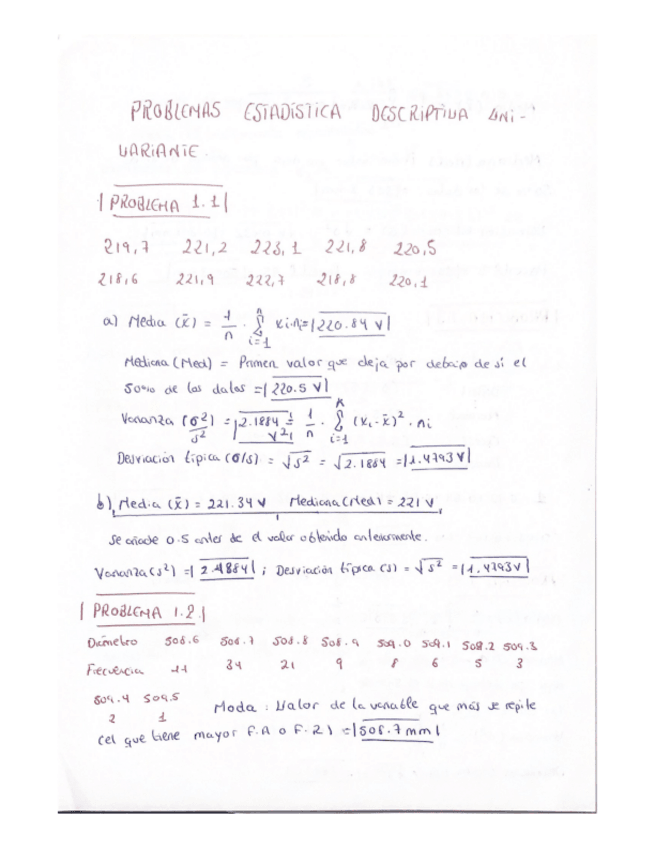 PROBLEMAS ESTADÍSTICA DESCRIPTIVA UNI-
VARIANTE.
PROBLEMA 1.1
219,7 221,2 223,1 221,8 220,5
218,6 221,9 222,7 218,8 220,1
a) Media (x̄) = 1/n · Σ i=1 n xi·ni = 220.84 V
Mediana (Med) = Primer valor que deja por debajo de sí el
50% de los datos = 220.5 V
Varianza (σ²)/s² = 2.1884 V² = 1/n · Σ i=1 k (xi-x̄)² · ni
Desviación típica (σ/s) = √s² = √2.1884 = 1.4793 V
b) Media (x̄) = 221.34 V Mediana (Med) = 221 V
Se añade 0.5 antes de el valor obtenido anteriormente.
Varianza (s²) = 2.1884 ; Desviación típica (s) = √s² = 1.4793 V
PROBLEMA 1.2
Diámetro 508.6 508.7 508.8 508.9 509.0 509.1 509.2 509.3
Frecuencia 11 34 21 9 8 6 5 3
509.4 509.5
2 1
Moda : Valor de la variable que más se repite
(el que tiene mayor F.A o F.R) = 508.7 mm